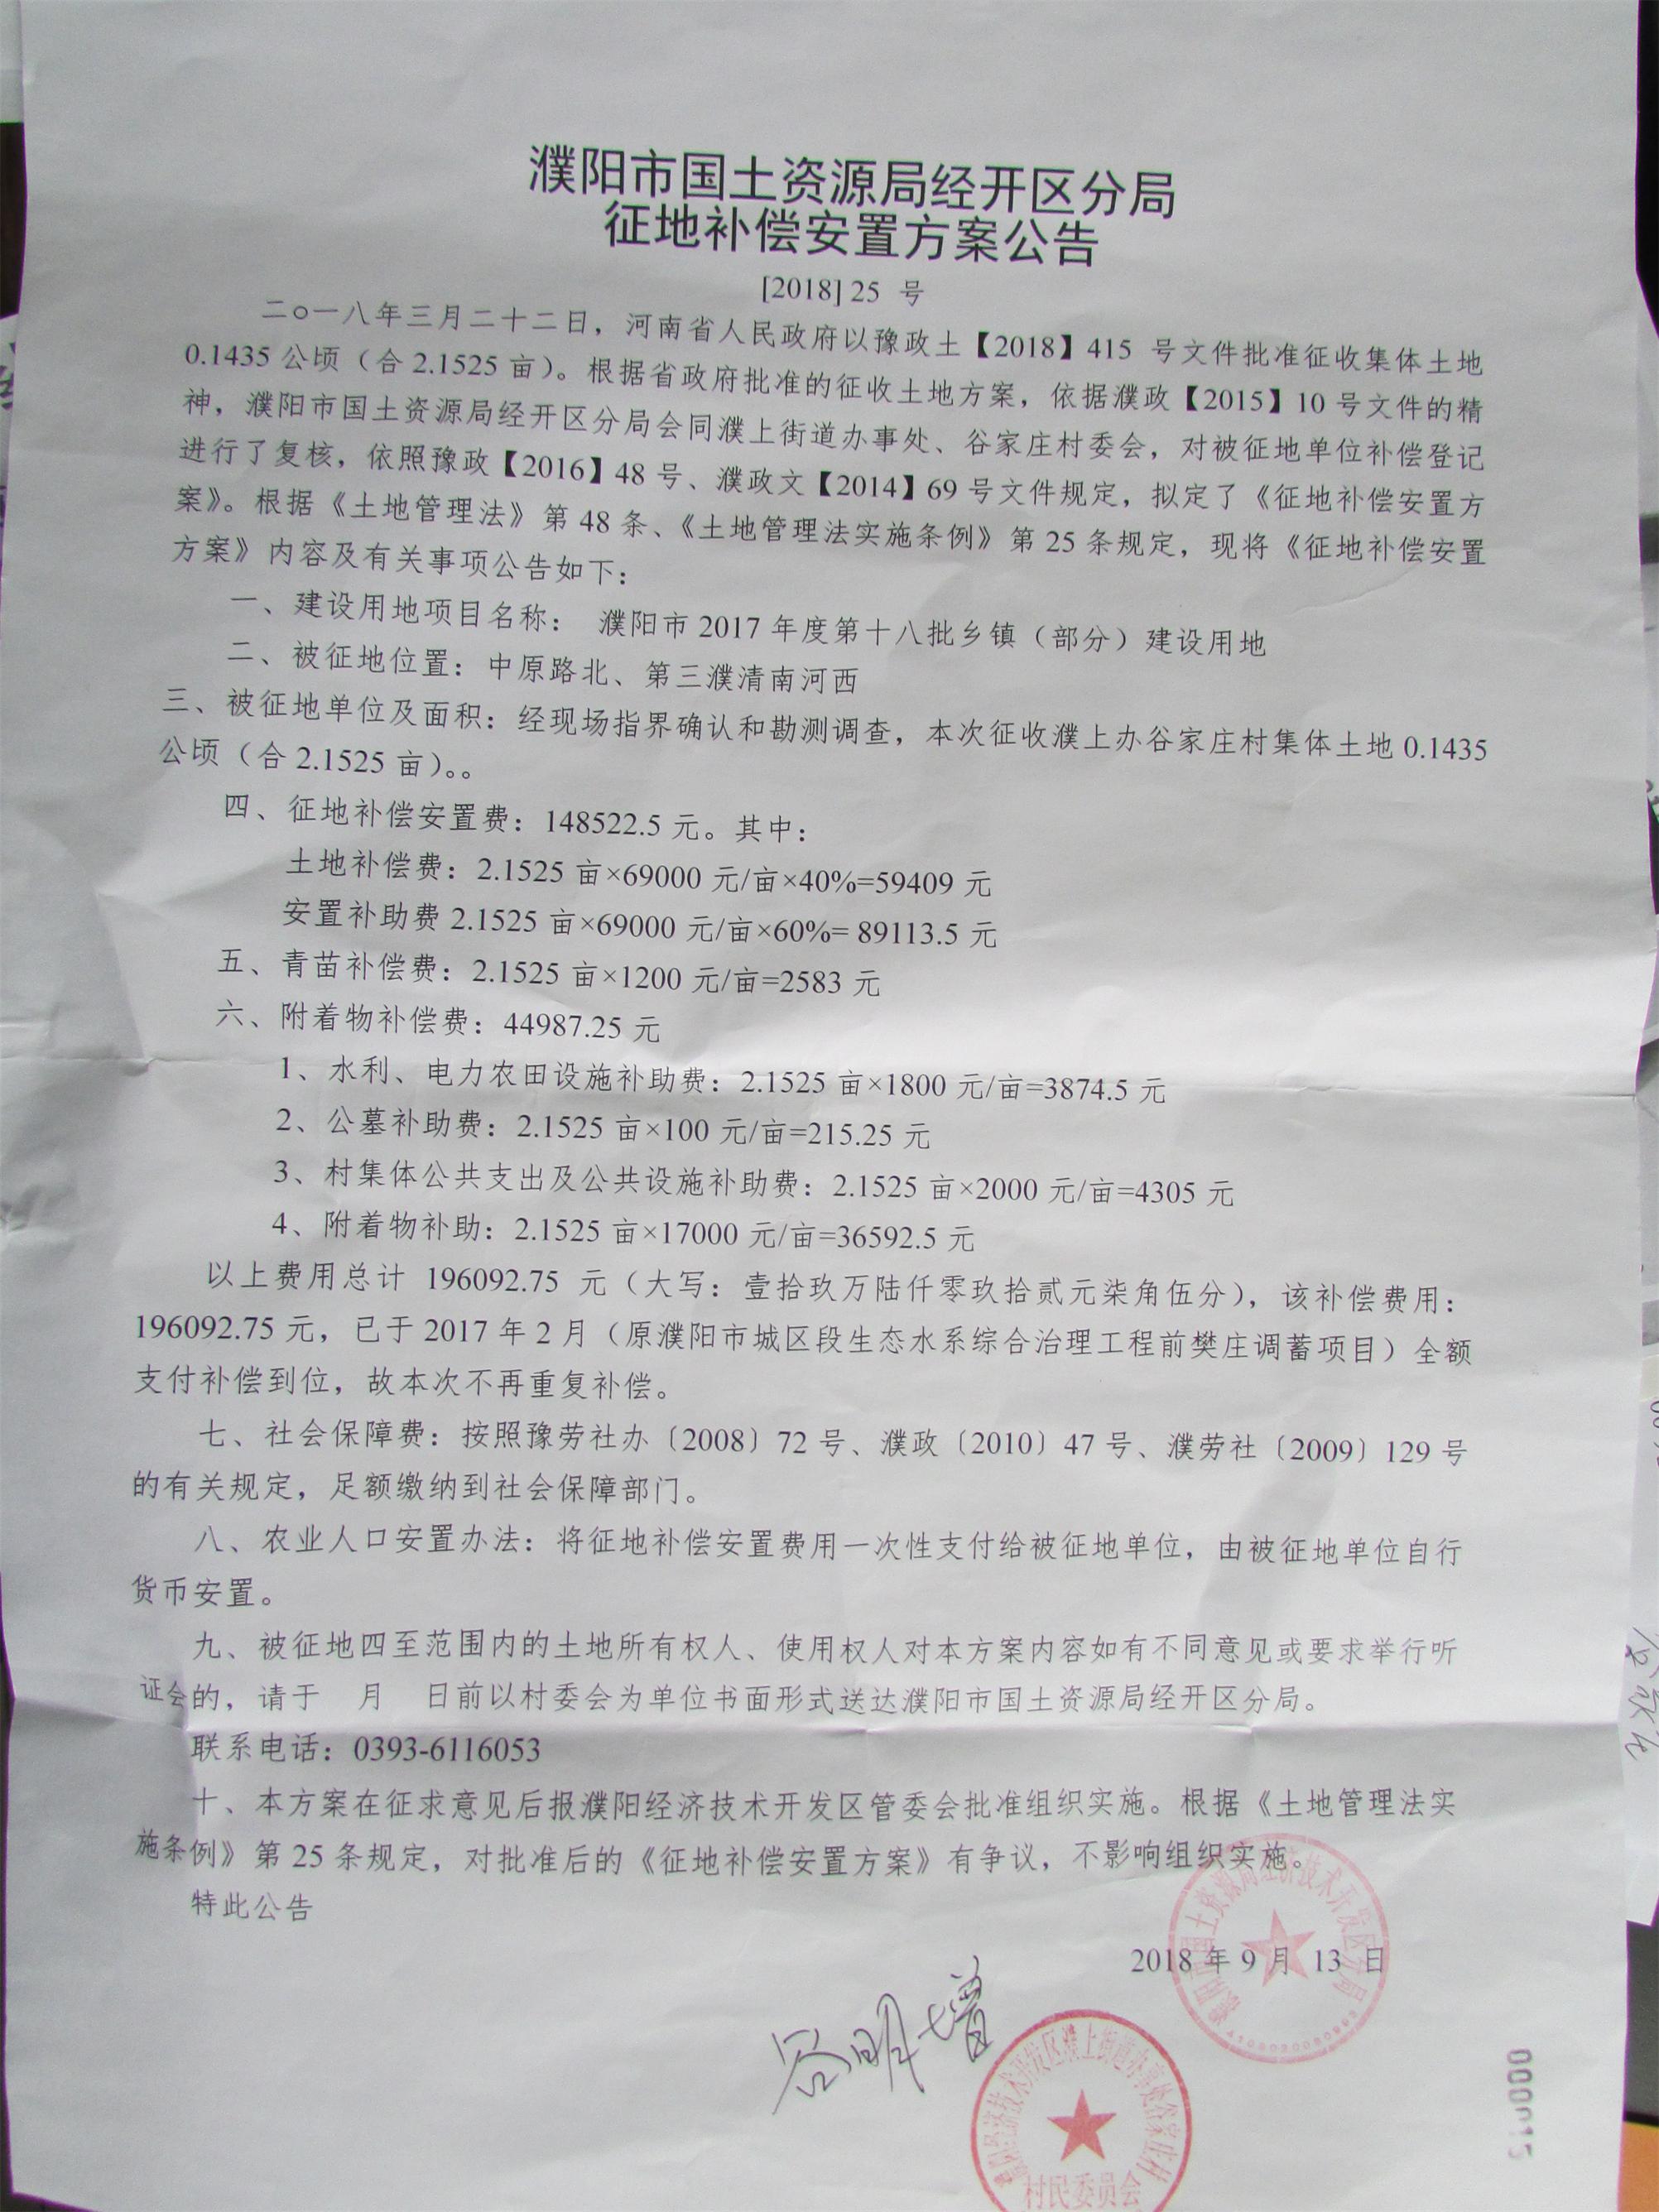 濮阳市国土资源局经开区分局
征地补偿安置方案公告
[2018] 25 号
二〇一八年三月二十二日，河南省人民政府以豫政土【2018】415 号文件批准征收集体土地
0.1435 公顷（合 2.1525 亩）。根据省政府批准的征收土地方案，依据濮政【2015】10 号文件的精
神，濮阳市国土资源局经开区分局会同濮上街道办事处、谷家庄村委会，对被征地单位补偿登记
进行了复核，依照豫政【2016】48 号、濮政文【2014】69 号文件规定，拟定了《征地补偿安置方
案》。根据《土地管理法》第 48 条、《土地管理法实施条例》第 25 条规定，现将《征地补偿安置
方案》内容及有关事项公告如下：
一、建设用地项目名称： 濮阳市 2017 年度第十八批乡镇（部分）建设用地
二、被征地位置：中原路北、第三濮清南河西
三、被征地单位及面积：经现场指界确认和勘测调查，本次征收濮上办谷家庄村集体土地 0.1435
公顷（合 2.1525 亩）。。
四、征地补偿安置费：148522.5 元。其中：
土地补偿费：2.1525 亩×69000 元/亩×40%=59409 元
安置补助费 2.1525 亩×69000 元/亩×60%= 89113.5 元
五、青苗补偿费：2.1525 亩×1200 元/亩=2583 元
六、附着物补偿费：44987.25 元
1、水利、电力农田设施补助费：2.1525 亩×1800 元/亩=3874.5 元
2、公墓补助费：2.1525 亩×100 元/亩=215.25 元
3、村集体公共支出及公共设施补助费：2.1525 亩×2000 元/亩=4305 元
4、附着物补助：2.1525 亩×17000 元/亩=36592.5 元
以上费用总计 196092.75 元（大写：壹拾玖万陆仟零玖拾贰元柒角伍分），该补偿费用：
196092.75 元，已于 2017 年 2 月（原濮阳市城区段生态水系综合治理工程前樊庄调蓄项目）全额
支付补偿到位，故本次不再重复补偿。
七、社会保障费：按照豫劳社办〔2008〕72 号、濮政〔2010〕47 号、濮劳社〔2009〕129 号
的有关规定，足额缴纳到社会保障部门。
八、农业人口安置办法：将征地补偿安置费用一次性支付给被征地单位，由被征地单位自行
货币安置。
九、被征地四至范围内的土地所有权人、使用权人对本方案内容如有不同意见或要求举行听
证会的，请于 月 日前以村委会为单位书面形式送达濮阳市国土资源局经开区分局。
联系电话：0393-6116053
十、本方案在征求意见后报濮阳经济技术开发区管委会批准组织实施。根据《土地管理法实
施条例》第 25 条规定，对批准后的《征地补偿安置方案》有争议，不影响组织实施。
特此公告
2018 年 9 月 13 日
濮阳市国土资源局经济技术开发区分局
谷明增
濮阳经济技术开发区濮上街道办事处谷家庄村
村民委员会